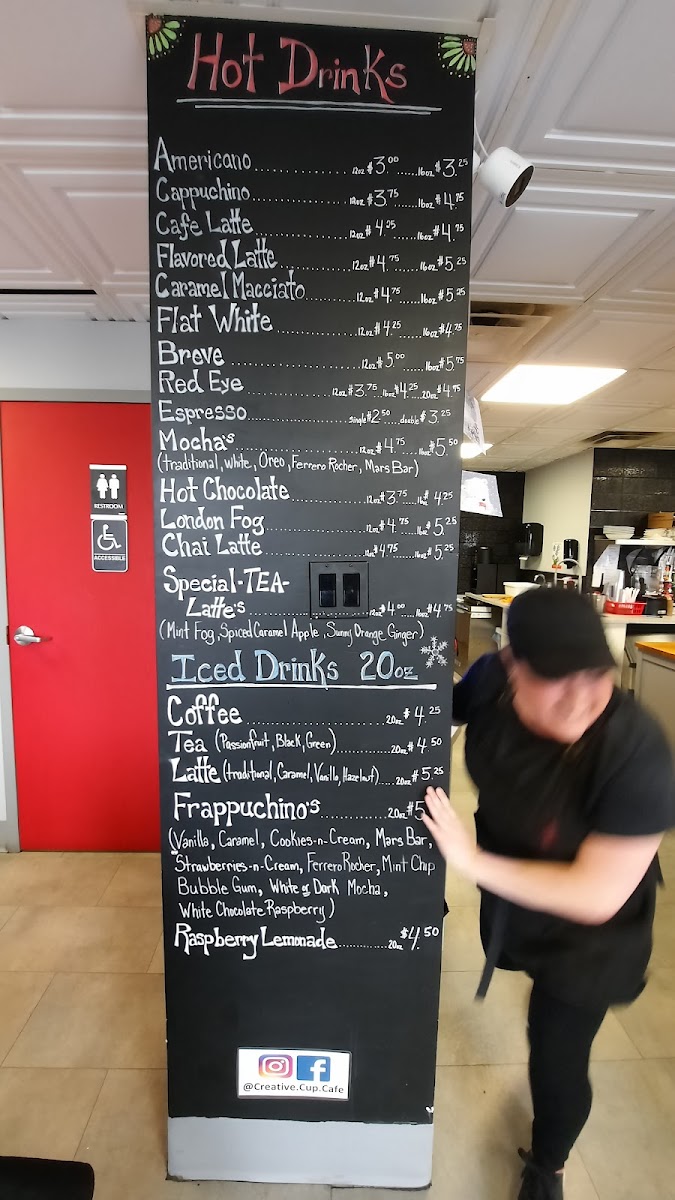 Hot Drinks
Americano 12oz $3.00 16oz $3.25
Cappuchino 12oz $3.75 16oz $4.25
Cafe Latte 12oz $4.25 16oz $4.75
Flavored Latte 12oz $4.75 16oz $5.25
Caramel Macciato 12oz $4.75 16oz $5.25
Flat White 12oz $4.25 16oz $4.75
Breve 12oz $5.00 16oz $5.75
Red Eye 12oz $3.75 16oz $4.25 20oz $4.75
Espresso single $2.50 double $3.25
Mocha's 12oz $4.75 16oz $5.50
(traditional, white, Oreo, Ferrero Rocher, Mars Bar)
Hot Chocolate 12oz $3.75 16oz $4.25
London Fog 12oz $4.75 16oz $5.25
Chai Latte 12oz $4.75 16oz $5.25
Special-TEA-
Latte's 12oz $4.00 16oz $4.75
(Mint Fog, Spiced Caramel Apple, Sunny Orange Ginger)
Iced Drinks 20oz
Coffee 20oz $4.25
Tea (Passionfruit, Black, Green) 20oz $4.50
Latte (traditional, Caramel, Vanilla, Hazelnut) 20oz $5.25
Frappuchino's 20oz $5
(Vanilla, Caramel, Cookies-n-Cream, Mars Bar,
Strawberries-n-Cream, Ferrero Rocher, Mint Chip
Bubble Gum, White or Dark Mocha,
White Chocolate Raspberry)
Raspberry Lemonade 20oz $4.50
@Creative.Cup.Cafe
RESTROOM
ACCESSIBLE